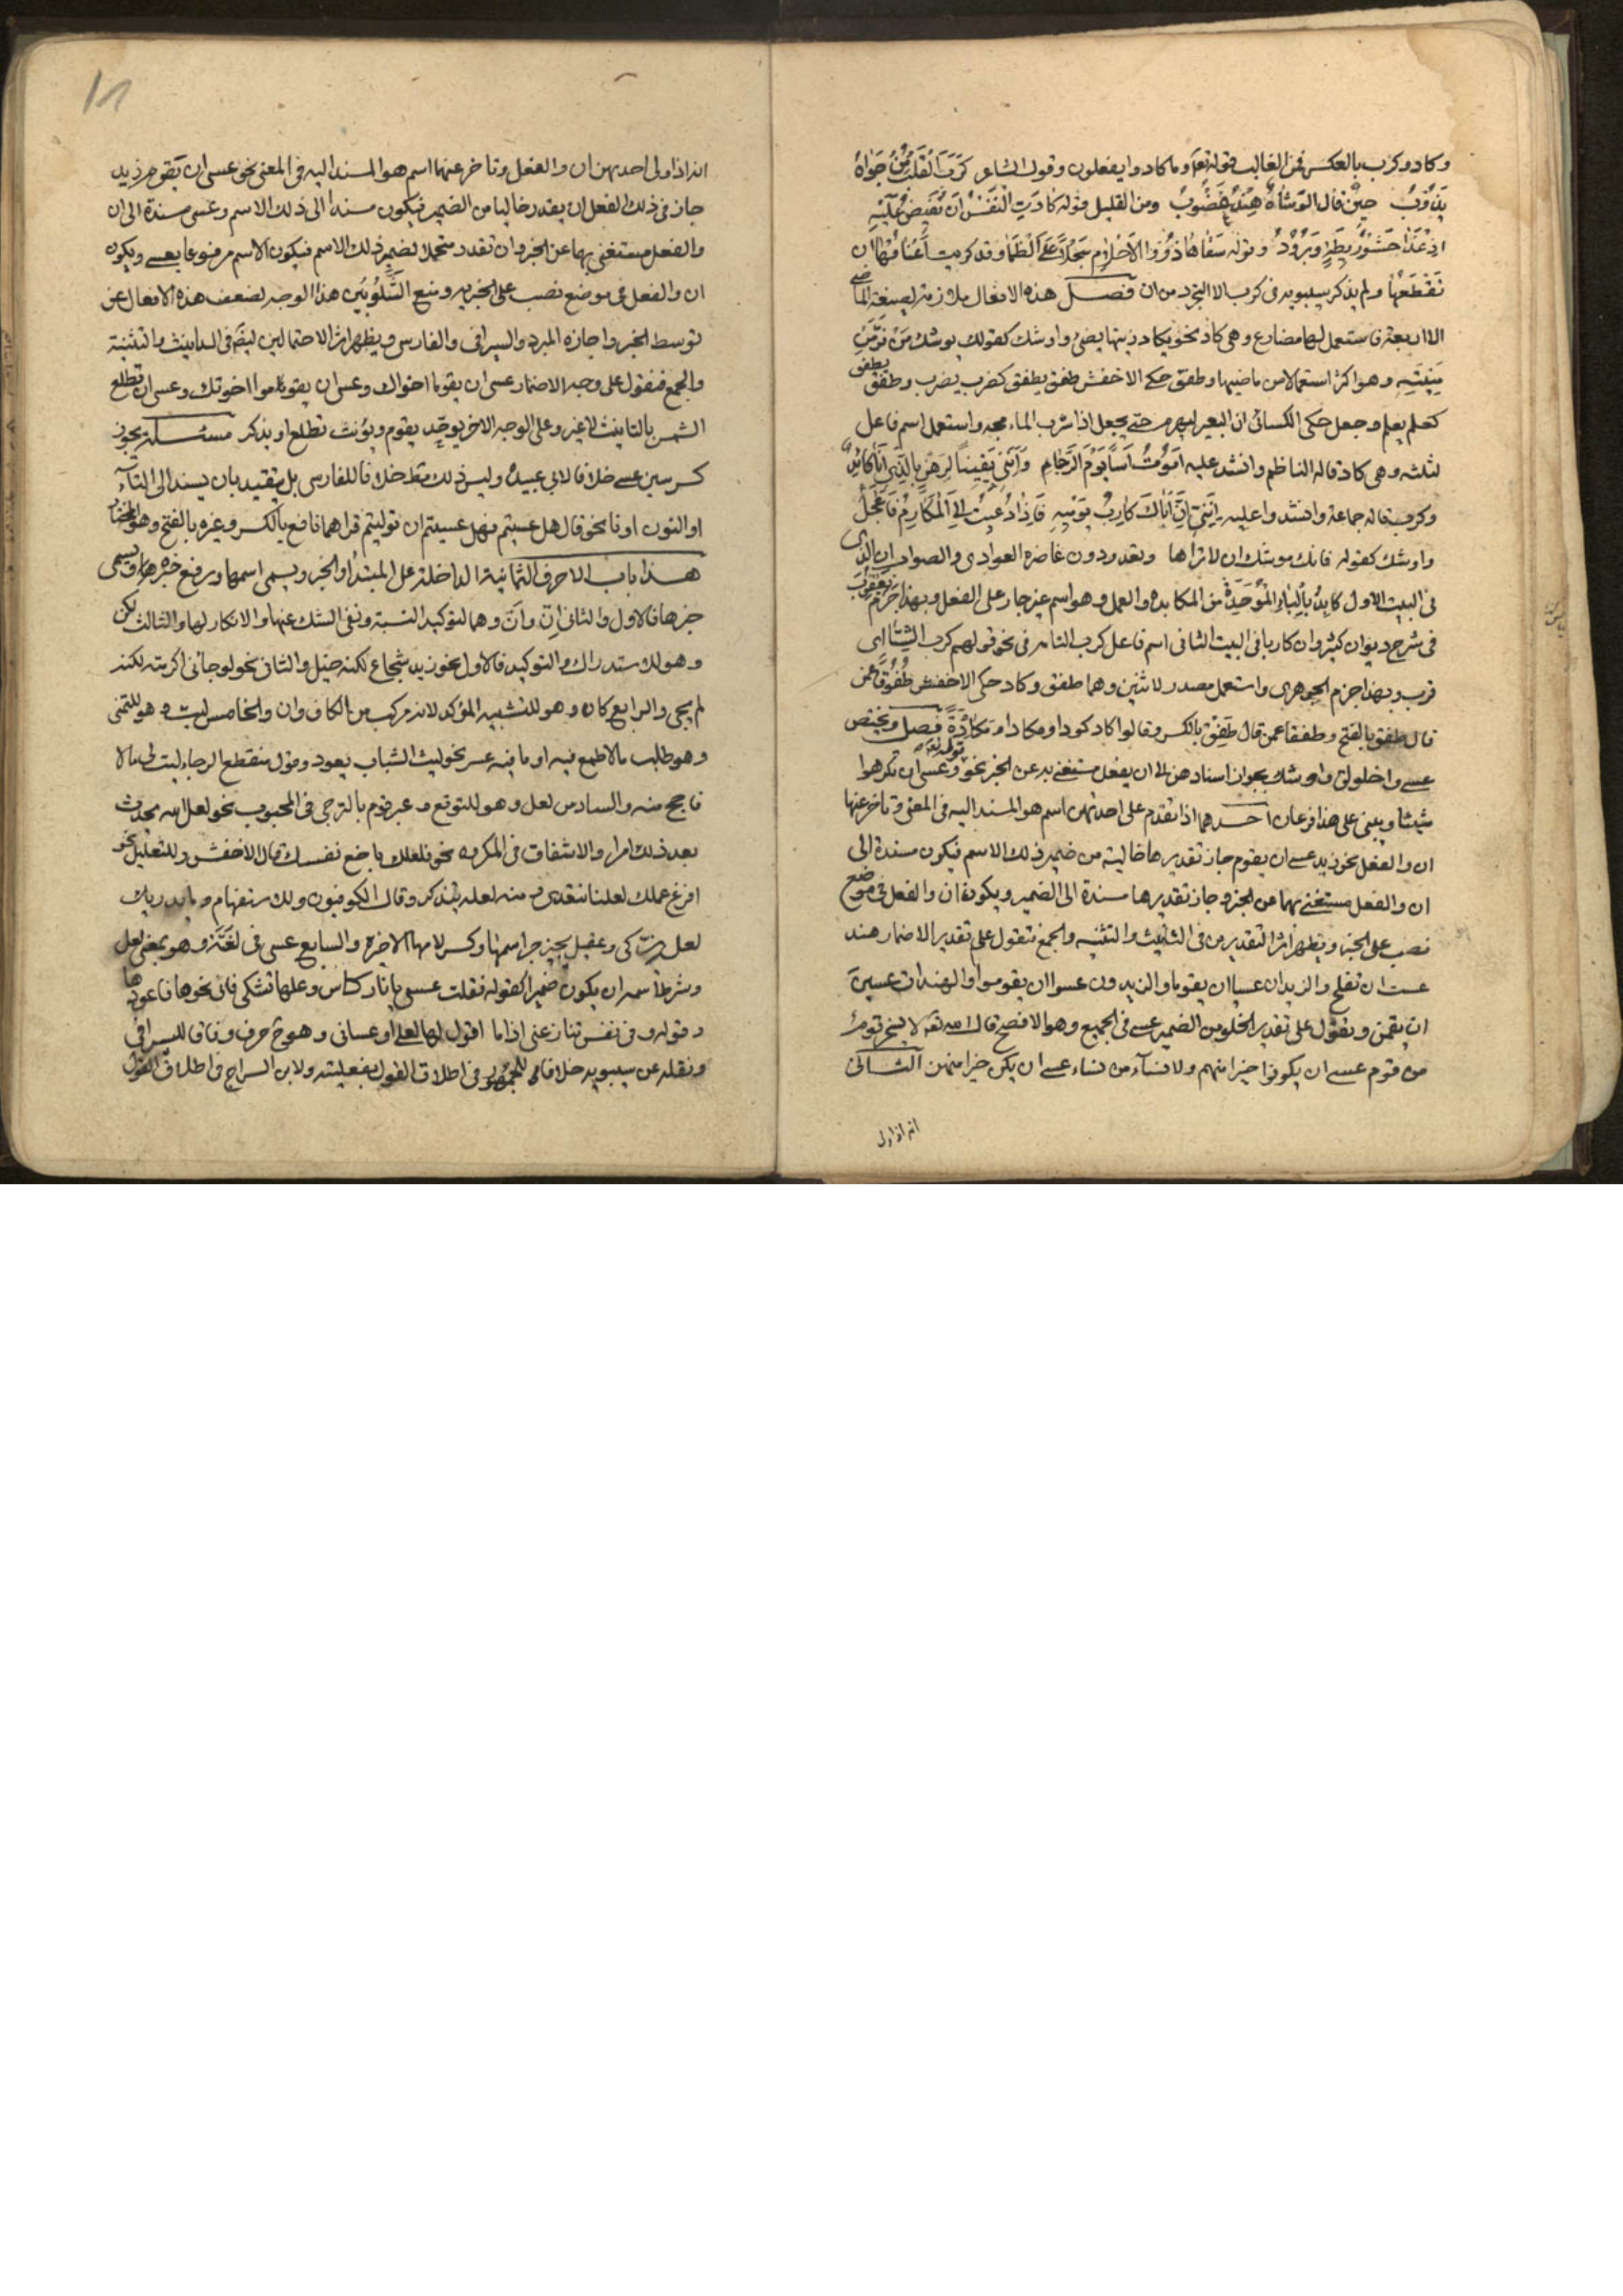 وكاد وكرب بالعكس فمن الغالب قوله تعا وما كادوا يفعلون وقول الشاعر كَرَبَ الْقَلْبُ مِنْ جَوَاهُ
يَذُوْبُ حِيْنَ قَالَ الْوُشَاةُ هِنْدٌ غَضُوبٌ ومن القليل قوله كَادَتِ الْنَفْسُ اَنْ تَفِيْضَ عَلَيْهِ
اِذْ غَدَا حَشْوُ رَيْطَةٍ وَبُرُوْدٍ وقوله سَقَاهَا ذَوُو الْاَحْلَامِ سَجْلًا عَلَى الْظَمَا وقد كربت اَعْنَاقُهَا ان
تَقَطَعَهَا ولم يذكر سيبويه فى كرب الا التجرد من ان فصل هذه الافعال ملازمة لصيغة الماضى
الا اربعة فاستعمل لها مضارع وهى كاد نحو يكاد زيتها يضئ واوشك كقولك يوشك مَنْ فَرَّ مِنْ
مَنِيَّتِهِ وهو اكثر استعمالا من ماضيها وطفق حكى الاخفش طفق يطفق كضرب يضرب وطفق يطفق
كعلم يعلم وجعل حكى الكسائى ان البعير ليهرم حتى يجعل اذا شرب الماء مجه واستعمل اسم فاعل
لثلثه وهى كاد قاله الناظم وانشد عليه اَمُوْتُ اَسًا يَوْمَ الرِّجَامِ وَاِنَّنِىْ يَقِيْناً لَرَهْنٌ بِالَّذِى اَنَا كَائِدٌ
وكرب قاله جماعة وانشدوا عليه اَبُنَيَّ اِنَّ اَبَاكَ كَارِبُ يَوْمِهِ فَاِذَا دُعِيْتَ اِلَى الْمَكَارِمِ فَاَعْجَلُ
واوشك كقوله فانك موشك ان لا تراها وتعدو دون غاضرة العوادى والصواب ان الذى
فى البيت الاول كابد بالباء الموحدة من المكابده والعمل وهو اسم غير جار على الفعل وبهذا جزم يعقوب
فى شرح ديوان كثير وان كاربا فى البيت الثانى اسم فاعل كرب التامه فى نحو قولهم كرب الشتا اى
قرب وبهذا جزم الجوهرى واستعمل مصدر لاثنين وهما طفق وكاد حكى الاخفش طُفُوْقًا عمن
قال طفق بالفتح وطفقا عمن قال طَفِقَ بالكسر وقالوا كاد كودا ومكادا ومكَادَةً فصل ويختص
عسى واخلولق واوشك بجواز اسنادهن الى ان يفعل مستغنى به عن الخبر نحو قوله تعا وعسى ان تكرهوا
شيئا ويبنى على هذا فرعان احدهما اذا تقدم على احديهن اسم هو المسند اليه فى المعنى وتاخر عنها
ان والفعل نحو زيد عسى ان يقوم جاز تقديرها خالية من ضمير ذلك الاسم فيكون مسندة الى
ان والفعل مستغنى بهما عن الخبر وجاز تقديرها مسندة الى الضمير ويكون ان والفعل فى موضع
نصب على الخبر ويظهر اثر التقديرين فى التانيث والتثنيه والجمع فتقول على تقدير الاضمار هند
عست ان تفلح والزيدان عسيا ان يقوما والزيدون عسوا ان يقوموا والهندات عسين
ان يقمن وتقول على تقدير الخلو من الضمير عسى فى الجميع وهو الافصح قال الله تعا لا يسخر قوم
من قوم عسى ان يكونوا خيرا منهم ولا نساء من نساء عسى ان يكن خيرا منهن الثانى
انه اذا ولى
انه اذا ولى احديهن ان والفعل وتاخر عنهما اسم هو المسند اليه فى المعنى نحو عسى ان يقوم زيد
جاز فى ذلك الفعل ان يقدر خاليا من الضمير فيكون مسندا الى ذلك الاسم وعسى مسندة الى ان
والفعل مستغنى بهما عن الخبر وان تقدر متحملا لضمير ذلك الاسم فيكون الاسم مرفوعا بعسى ويكون
ان والفعل فى موضع نصب على الخبريه ومنع الشَّلَوْبِيْن هذا الوجه لضعف هذه الافعال عن
توسط الخبر واجازه المبرد والسيرافى والفارسى ويظهر اثر الاحتمالين ايضًا فى التانيث والتثنية
والجمع فتقول على وجه الاضمار عسى ان يقوما اخواك وعسى ان يقوموا اخوتك وعسى ان تطلع
الشمس بالتانيث لا غير وعلى الوجه الاخر يوحِّد يقوم ويؤنث تطلع او يذكر مسئلة يجوز
كسر سين عسى خلافا لابى عبيدة وليس ذلك مطلقا خلافا للفارسى بل يتقيد بان يسند الى التآء
او النون او نا نحو قال هل عسيتم فهل عسيتم ان توليتم قراهما نافع بالكسر وغيره بالفتح وهو المختار
هذا باب الاحرف الثمانية الداخلة على المبتدأ والخبر ويسمى اسمها ورفع خبره ويسمى
خبرها فالاول والثانى اِنَّ وانَّ وهما لتوكيد النسبة ونفى الشك عنها والانكار لها والثالث لكن
وهو للاستدراك والتوكيد فالاول نحو زيد شجاع لكنه بخيل والثانى نحو لو جائنى اكرمته لكنه
لم يجى والرابع كان وهو للتشبيه المؤكد لانه مركب من الكاف وان والخامس ليت وهو للتمنى
وهو طلب ما لا طمع فيه او ما فيه عسر نحو ليت الشباب يعود وقول منقطع الرجا ليت لى مالا
فاحج منه والسادس لعل وهو للتوقع وعبر قوم بالترجى فى المحبوب نحو لعل الله يحدث
بعد ذلك امرا والاشفاق فى المكروه نحو فلعلك باخع نفسك قال الاخفش وللتعليل نحو
افرغ عملك لعلنا نتغدى ومنه لعله يتذكر وقال الكوفيون وللاستفهام وما يدريك
لعله يزكى وعقيل يجيز جر اسمها وكسر لامها الاخيره والسابع عسى فى لُغَيَّة وهو بمعنى لعل
وشرط اسمه ان يكون ضميرا كقوله فقلت عسى يا نار كاس وعلها تشكى فاتى نحوها فاعودها
وقوله وفى نفس تنازعنى اذا ما اقول لها لعلى او عسانى وهو ح حرف وفاقا للسيرافى
ونقله عن سيبويه خلافا للجمهور فى اطلاق القول بفعليته ولابن السراج فى اطلاق القول